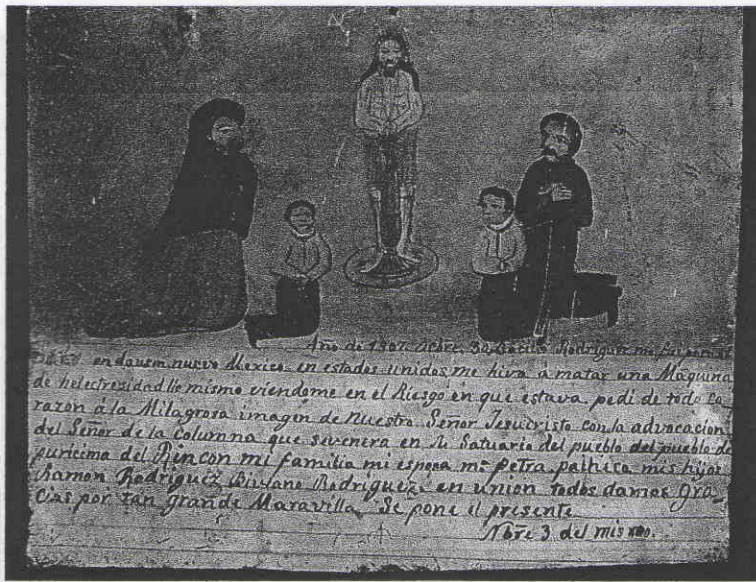 Año de 1907. Rodriguez me
en dausem nuevo Mexico en estados unidos me hiva á matar una Maquina
de helectresidad lie mismo viendome en el Riesgo en que estava pedi de todo co
razon á la Milagrosa imagen de Nuestro Señor Jesucristo con la advocacion
del Señor de la columna que sevenera en Satuario del pueblo del pueblo de
puricima del Rincon mi familia mi esposa mª petra pacheca mis hijos
Ramon Rodriguez Rodriguez en union todos damos gra_
cias por tan grande Maravilla. Se pone el presente
Nbre 3 del mismo.